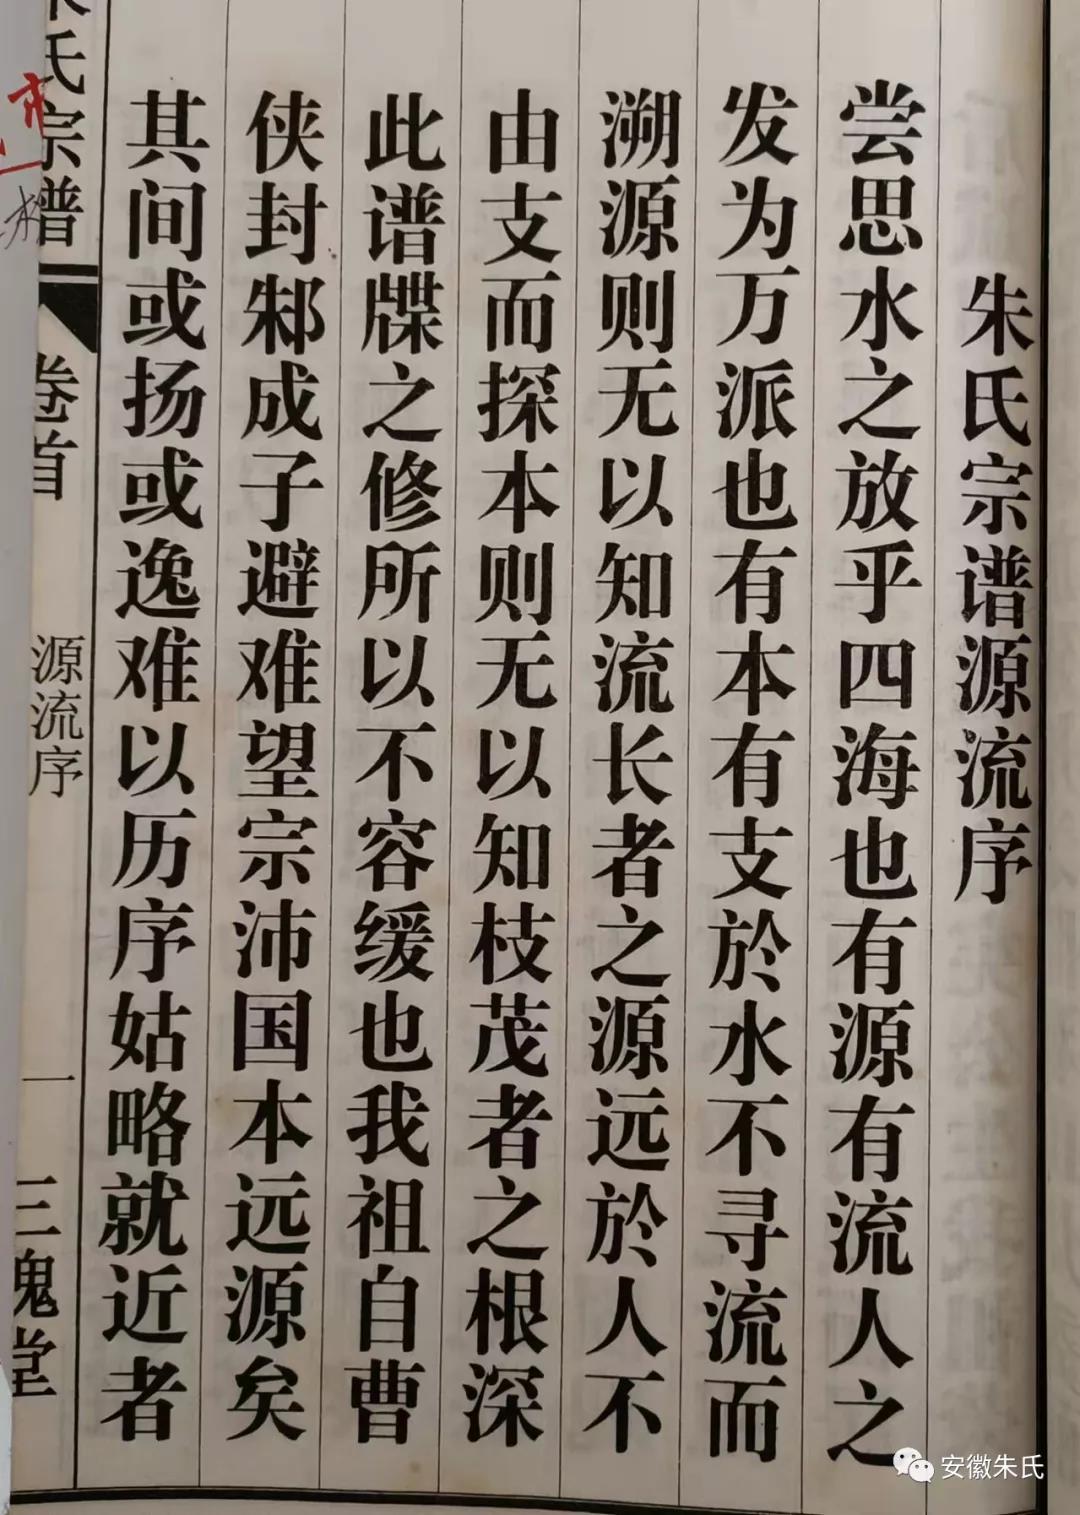 朱氏宗谱源流序
尝思水之放乎四海也有源有流人之
发为万派也有本有支於水不寻流而
溯源则无以知流长者之源远於人不
由支而探本则无以知枝茂者之根深
此谱牒之修所以不容缓也我祖自曹
侠封邾成子避难望宗沛国本远源矣
其间或扬或逸难以历序姑略就近者
朱氏宗谱
卷首
源流序
一
三瑰堂
安徽朱氏